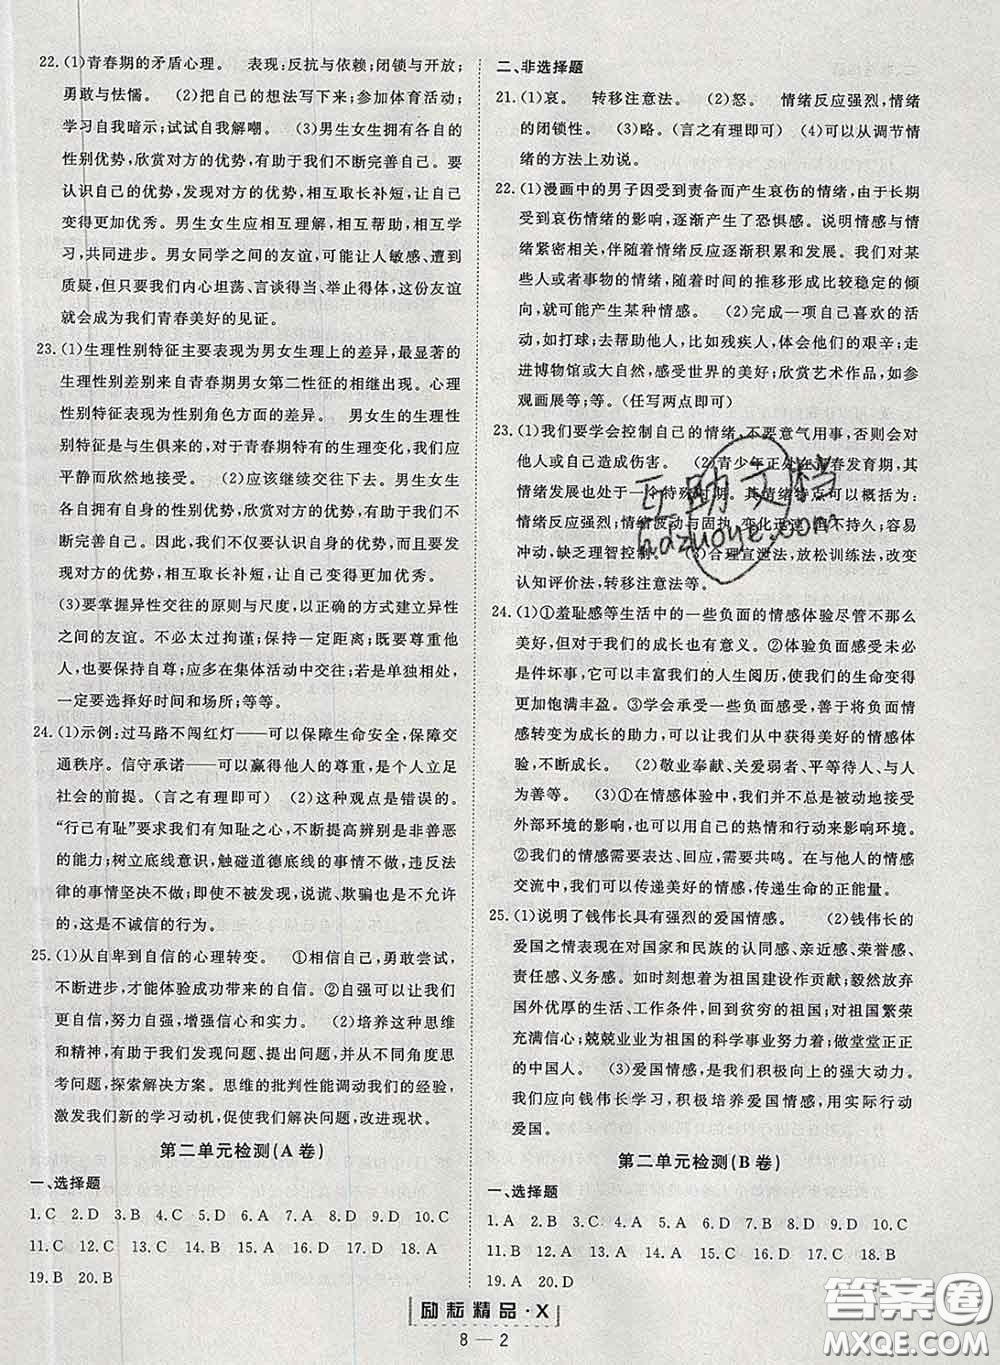 22. (1)青春期的矛盾心理。 表现:反抗与依赖;闭锁与开放;
勇敢与怯懦。 (2)把自己的想法写下来;参加体育活动;
学习自我暗示;试试自我解嘲。 (3)男生女生拥有各自的
性别优势,欣赏对方的优势,有助于我们不断完善自己。要
认识自己的优势,发现对方的优势,相互取长补短,让自己
变得更优秀。男生女生应相互理解,相互帮助,相互学
习,共同进步。男女同学之间的友谊,可能让人敏感、遭到
质疑,但只要我们内心坦荡、言谈得当、举止得体,这份友谊
就会成为我们青春美好的见证。
23. (1)生理性别特征主要表现为男女生理上的差异,最显著的
生理性别差别来自青春期男女第二性征的相继出现。心理
性别特征表现为性别角色方面的差异。 男女生的生理性
别特征是与生俱来的,对于青春期特有的生理变化,我们应
平静而欣然地接受。 (2)应该继续交往下去。男生女生
各自拥有自身的性别优势,欣赏对方的优势,有助于我们不
断完善自己。因此,我们不仅要认识自身的优势,而且要发
现对方的优势,相互取长补短,让我们变得更优秀。
(3)要掌握异性交往的原则与尺度,以正确的方式建立异性
之间的友谊。不必太过拘谨;保持一定距离;既要尊重他
人,也要保持自尊;应多在集体活动中交往;若是单独相处,
一定要选择好时间和场所;等等。
24. (1)示例:过马路不闯红灯——可以保障生命安全,保障交
通秩序。信守承诺——可以赢得他人的尊重,是个人立足
社会的前提。(言之有理即可) (2)这种观点是错误的。
“行己有耻”要求我们有知耻之心,不断提高辨别是非善恶
的能力;树立底线意识,触碰道德底线的事情不做,违反法
律的事情坚决不做;即使不被发现,说谎、欺骗也是不允许
的,这是不诚信的行为。
25. (1)从自卑到自信的心理转变。 ①相信自己,勇敢尝试,
不断进步,才能体验成功带来的自信。②自强可以让我们
更自信,努力自强,增强信心和实力。 (2)培养这种思维
和精神,有助于我们发现问题、提出问题,并从不同角度思
考问题,探索解决方案。思维的批判性能调动我们的经验,
激发我们新的学习动机,促使我们解决问题,改进现状。
第二单元检测(A卷)
一、选择题
1.C 2.D 3.B 4.C 5.D 6.A 7.D 8.D 9.D 10.C
11.C 12.C 13.C 14.C 15.A 16.D 17.D 18.A
19.B 20.B
二、非选择题
21. (1)哀。 转移注意法。 (2)怒。 情绪反应强烈,情绪
的闭锁性。 (3)略。(言之有理即可) (4)可以从调节情
绪的方法上劝说。
22. (1)漫画中的男子因受到责备而产生哀伤的情绪,由于长期
受到哀伤情绪的影响,逐渐产生了恐惧感。说明情感与情
绪紧密相关,伴随着情绪反应逐渐积累和发展。我们对某
些人或者事物的情绪,随着时间的推移形成比较稳定的倾
向,就可能产生某种情感。 (2)完成一项自己喜欢的活
动,如打球;去帮助他人,比如残疾人,体会他们的艰辛;走
进博物馆或大自然,感受世界的美好;欣赏艺术作品,如参
观画展等;等。(任写两点即可)
23. (1)我们要学会控制自己的情绪,不要意气用事,否则会对
他人或自己造成伤害。 (2)青少年正处在青春发育期,其
情绪发展也处于一个特殊时期。其情绪特点可以概括为:
情绪反应强烈;情绪波动与固执,变化迅速,且不持久;容易
冲动,缺乏理智控制。 (3)合理宣泄法,放松训练法,改变
认知评价法,转移注意法等。
24. (1)①羞耻感等生活中的一些负面的情感体验尽管不那么
美好,但对于我们的成长也有意义。②体验负面感受未必
是件坏事,它可以丰富我们的人生阅历,使我们的生命变得
更加饱满丰盈。③学会承受一些负面感受,善于将负面情
感转变为成长的助力,可以让我们从中获得美好的情感体
验,不断成长。 (2)敬业奉献、关爱弱者、平等待人、与人
为善等。 (3)①在情感体验中,我们并不总是被动地接受
外部环境的影响,也可以用自己的热情和行动来影响环境。
②我们的情感需要表达、回应,需要共鸣。在与他人的情感
交流中,我们可以传递美好的情感,传递生命的正能量。
25. (1)说明了钱伟长具有强烈的爱国情感。 (2)钱伟长的
爱国之情表现在对国家和民族的认同感、亲近感、荣誉感、
责任感、义务感。如时刻想着为祖国建设作贡献;毅然放弃
国外优厚的生活、工作条件,回到贫穷的祖国;对祖国繁荣
充满信心;兢兢业业为祖国的科学事业努力着;做堂堂正正
的中国人。 (3)爱国情感,是我们积极向上的强大动力。
我们应向钱伟长学习,积极培养爱国情感,用实际行动
爱国。
第二单元检测(B卷)
一、选择题
1.A 2.B 3.C 4.D 5.A 6.A 7.D 8.A 9.D 10.C
11.B 12.B 13.D 14.A 15.A 16.C 17.B 18.B
19.A 20.D
励耘精品·X
8—2
互助文档
hdzuoye.com
答案圈
MXQE.COM